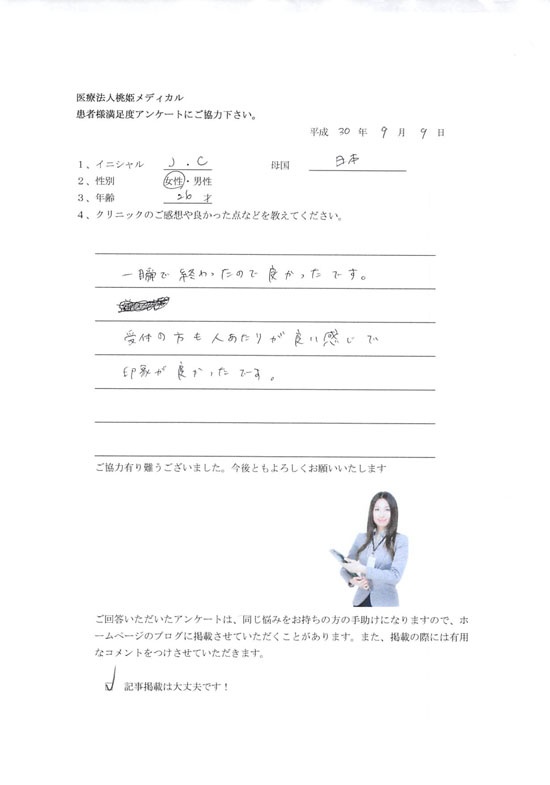 医療法人桃姫メディカル
患者様満足度アンケートにご協力下さい。
平成 30 年 9 月 9 日
1、イニシャル J . C 母国 日本
2、性別 女性・男性
3、年齢 26 才
4、クリニックのご感想や良かった点などを教えてください。
一瞬で終わったので良かったです。
受付の方も人あたりが良い感じで
印象が良かったです。
ご協力有り難うございました。今後ともよろしくお願いいたします
ご回答いただいたアンケートは、同じ悩みをお持ちの方の手助けになりますので、ホ
ームページのブログに掲載させていただくことがあります。また、掲載の際には有用
なコメントをつけさせていただきます。
☑ 記事掲載は大丈夫です！